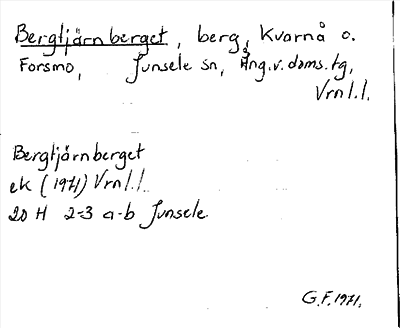 Bergtjärnberget, berg, Kvarnå o.
Forsmo, Junsele sn, Ång.v.doms.tg,
Vrnl.l.
Bergtjärnberget
ek (1971) Vrnl.l.
20 H 2-3 a-b Junsele
G.F. 1971.